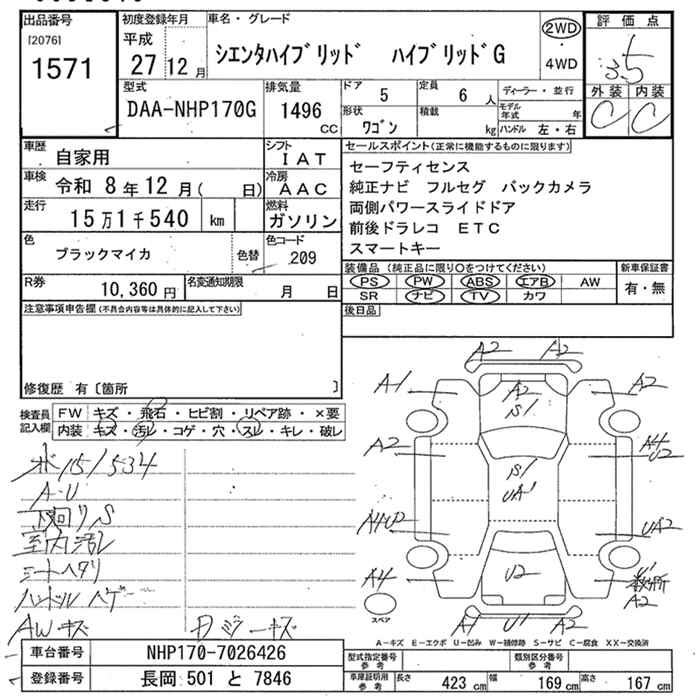 出品番号
[2076]
1571
初度登録年月
平成
27 12 月
車名・グレード
シエンタハイブリッド ハイブリッドG
2WD
・
4WD
評価点
3.5
外装 内装
C C
型式
DAA-NHP170G
排気量
1496
cc
ドア 5
定員 6 人
形状
ワゴン
積載
kg
ディーラー・並行
モデル年式 年
ハンドル 左・右
車歴
自家用
シフト
IAT
車検 令和 8年12月( 日)
冷房
AAC
走行 15万1千540 km
燃料
ガソリン
色
ブラックマイカ
色替
色コード
209
R券 10,360 円
名変通知期限
月 日
セールスポイント(正常に機能するものに限ります)
セーフティセンス
純正ナビ フルセグ バックカメラ
両側パワースライドドア
前後ドラレコ ETC
スマートキー
装備品(純正品に限り○をつけてください)
PS PW ABS エアB AW
SR ナビ TV カワ
新車保証書
有・無
後日品
注意事項申告欄(不具合内容等は具体的に記入して下さい)
修復歴 有〔箇所 〕
検査員
記入欄
FW キズ・飛石・ヒビ割・リペア跡・×要
内装 キズ・汚レ・コゲ・穴・スレ・キレ・破レ
15/534
A・U
下回りS
室内汚レ
シートヘタリ
ハンドルハゲ
AWキズ
A2 A2
A-1 A2 A2
S1
A2 A4
U2
S1
UA1
UA2
A4 U2
A2
A1 U1
スペア
A-キズ E-エクボ U-凹み W-補修跡 S-サビ C-腐食 XX-交換済
車台番号 NHP170-7026426
登録番号 長岡 501 と 7846
型式指定番号
参考
類別区分番号
参考
車庫証明用
参考
長さ 423 cm 幅 169 cm 高さ 167 cm